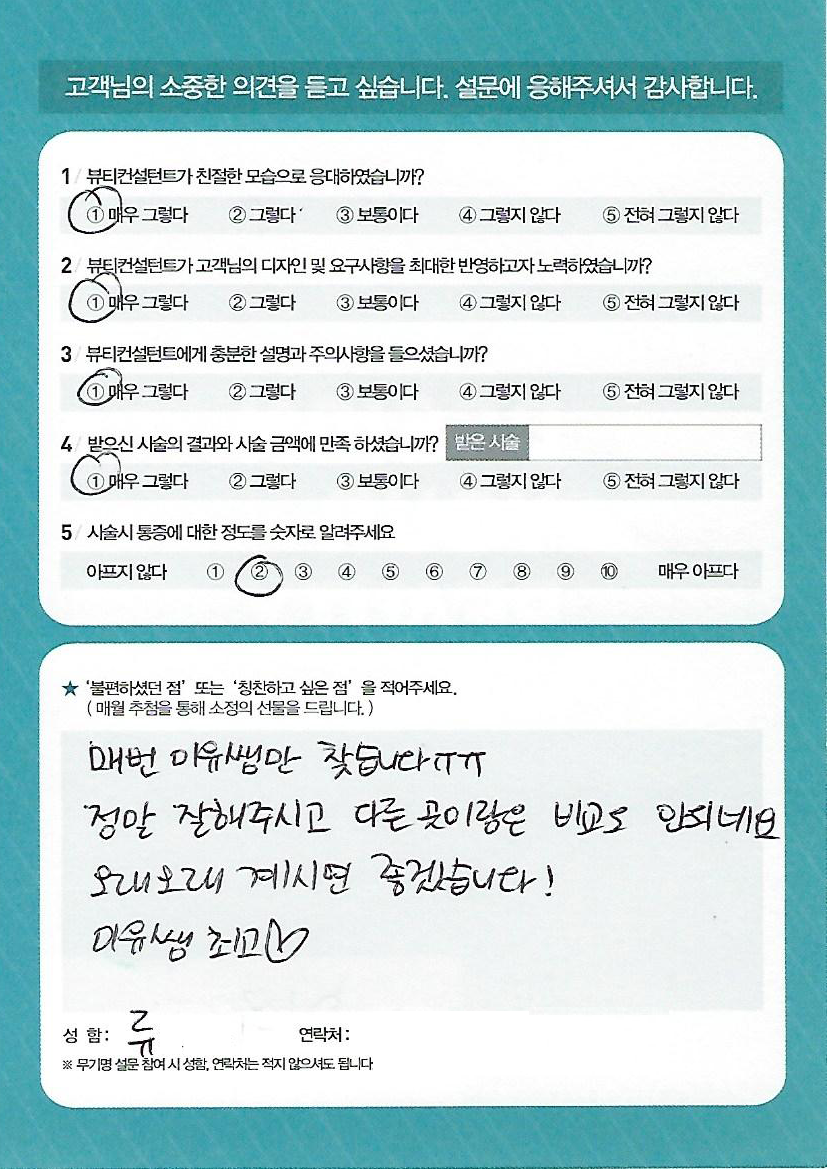 고객님의 소중한 의견을 듣고 싶습니다. 설문에 응해주셔서 감사합니다.
1 / 뷰티컨설턴트가 친절한 모습으로 응대하였습니까?
① 매우 그렇다 ② 그렇다 ③ 보통이다 ④ 그렇지 않다 ⑤ 전혀 그렇지 않다
2 / 뷰티컨설턴트가 고객님의 디자인 및 요구사항을 최대한 반영하고자 노력하였습니까?
① 매우 그렇다 ② 그렇다 ③ 보통이다 ④ 그렇지 않다 ⑤ 전혀 그렇지 않다
3 / 뷰티컨설턴트에게 충분한 설명과 주의사항을 들으셨습니까?
① 매우 그렇다 ② 그렇다 ③ 보통이다 ④ 그렇지 않다 ⑤ 전혀 그렇지 않다
4 / 받으신 시술의 결과와 시술 금액에 만족 하셨습니까? 받은 시술
① 매우 그렇다 ② 그렇다 ③ 보통이다 ④ 그렇지 않다 ⑤ 전혀 그렇지 않다
5 / 시술시 통증에 대한 정도를 숫자로 알려주세요
아프지 않다 ① ② ③ ④ ⑤ ⑥ ⑦ ⑧ ⑨ ⑩ 매우 아프다
★ '불편하셨던 점' 또는 '칭찬하고 싶은 점' 을 적어주세요.
( 매월 추첨을 통해 소정의 선물을 드립니다. )
매번 미유쌤만 찾습니다ㅠㅠ
정말 잘해주시고 다른 곳이랑은 비교도 안되네요
오래오래 계시면 좋겠습니다!
미유쌤 최고♡
성 함 : 류 연락처 :
※ 무기명 설문 참여 시 성함, 연락처는 적지 않으셔도 됩니다